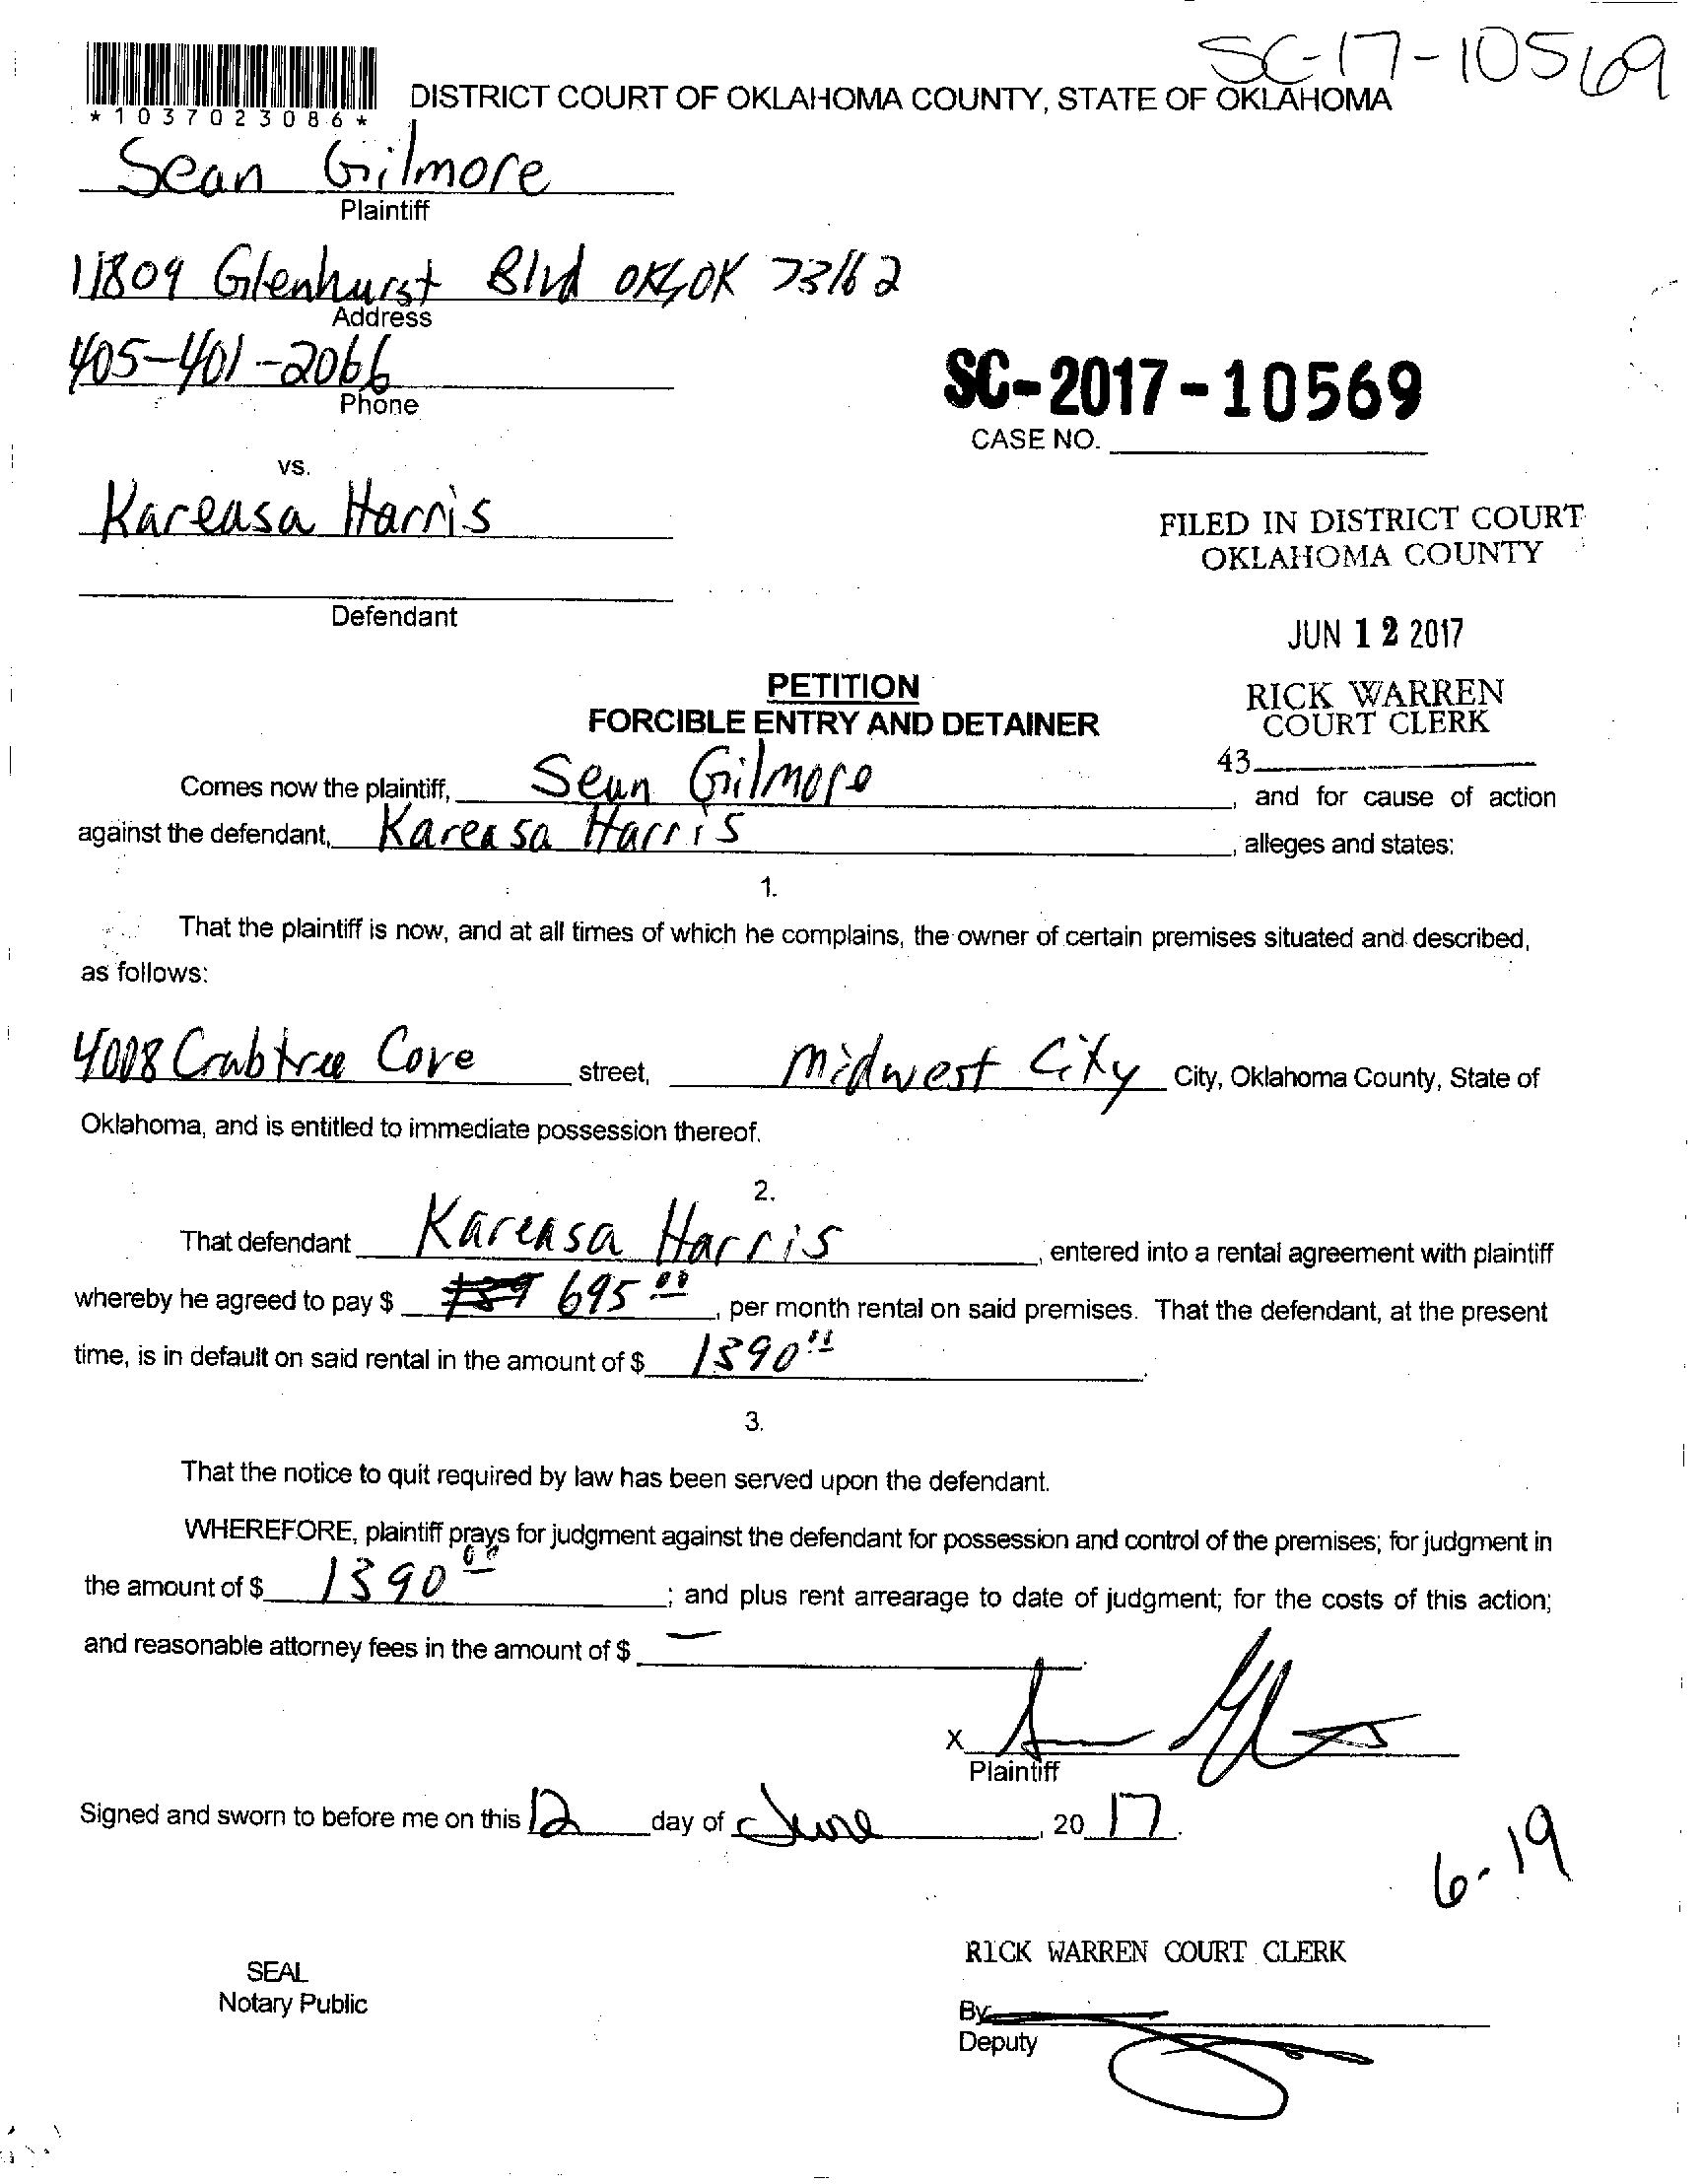 SC-17-10569
*1037023086*
DISTRICT COURT OF OKLAHOMA COUNTY, STATE OF OKLAHOMA
Sean Gilmore
Plaintiff
11809 Glenhurst Blvd OKC, OK 73162
Address
405-401-2066
Phone
SC-2017-10569
CASE NO.
vs.
Kareasa Harris
FILED IN DISTRICT COURT
OKLAHOMA COUNTY
Defendant
JUN 12 2017
PETITION
FORCIBLE ENTRY AND DETAINER
RICK WARREN
COURT CLERK
43
Comes now the plaintiff, Sean Gilmore, and for cause of action
against the defendant, Kareasa Harris, alleges and states:
1.
That the plaintiff is now, and at all times of which he complains, the owner of certain premises situated and described,
as follows:
4008 Crabtree Cove street, Midwest City City, Oklahoma County, State of
Oklahoma, and is entitled to immediate possession thereof.
2.
That defendant Kareasa Harris, entered into a rental agreement with plaintiff
whereby he agreed to pay $ 695 00, per month rental on said premises. That the defendant, at the present
time, is in default on said rental in the amount of $ 1390 00.
3.
That the notice to quit required by law has been served upon the defendant.
WHEREFORE, plaintiff prays for judgment against the defendant for possession and control of the premises; for judgment in
the amount of $ 1390 00; and plus rent arrearage to date of judgment; for the costs of this action;
and reasonable attorney fees in the amount of $ —.
X
Plaintiff
Signed and sworn to before me on this 12 day of June, 20 17.
6-19
RICK WARREN COURT CLERK
SEAL
Notary Public
By
Deputy